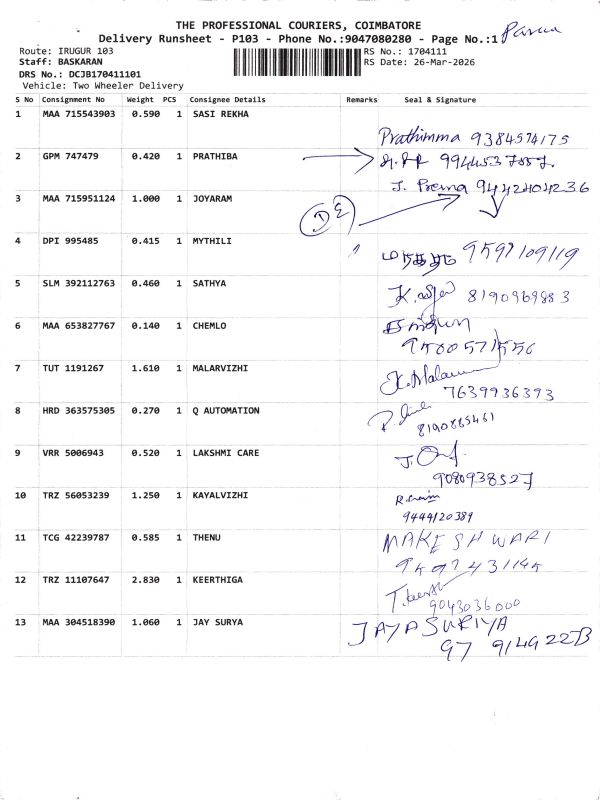 THE PROFESSIONAL COURIERS, COIMBATORE
Delivery Runsheet - P103 - Phone No.:9047080280 - Page No.:1
Route: IRUGUR 103
RS No.: 1704111
Staff: BASKARAN
RS Date: 26-Mar-2026
DRS No.: DCJB170411101
Vehicle: Two Wheeler Delivery
S No Consignment No Weight PCS Consignee Details Remarks Seal & Signature
1 MAA 715543903 0.590 1 SASI REKHA
Prathimma 9384574175
2 GPM 747479 0.420 1 PRATHIBA
J. Prema 9442404236
3 MAA 715951124 1.000 1 JOYARAM
DE
4 DPI 995485 0.415 1 MYTHILI
9597109119
5 SLM 392112763 0.460 1 SATHYA
8190969883
6 MAA 653827767 0.140 1 CHEMLO
9500571556
7 TUT 1191267 1.610 1 MALARVIZHI
7639936393
8 HRD 363575305 0.270 1 Q AUTOMATION
8190885461
9 VRR 5006943 0.520 1 LAKSHMI CARE
9080938527
10 TRZ 56053239 1.250 1 KAYALVIZHI
9444120389
11 TCG 42239787 0.585 1 THENU
MAKESHWARI
12 TRZ 11107647 2.830 1 KEERTHIGA
9043036000
13 MAA 304518390 1.060 1 JAY SURYA
JAYASURIYA